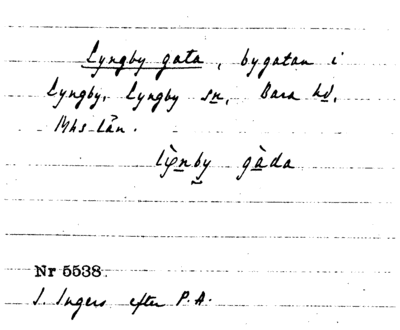 Lyngby gata, bygatan i
Lyngby, Lyngby sn, Bara hd,
Mhs län.
gàda
Nr 5538.
I. Ingers efter P.A.